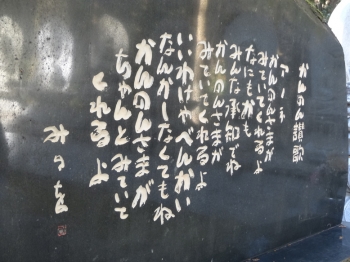 かんのん讃歌
かんのんさまが
みていてくれるよ
アノネ
なにもかも
みんな承知でね
かんのんさまが
みていてくれるよ
いいわけやべんかい
なんかしたくてもね
かんのんさまが
ちゃんとみていて
くれるよ
みつを